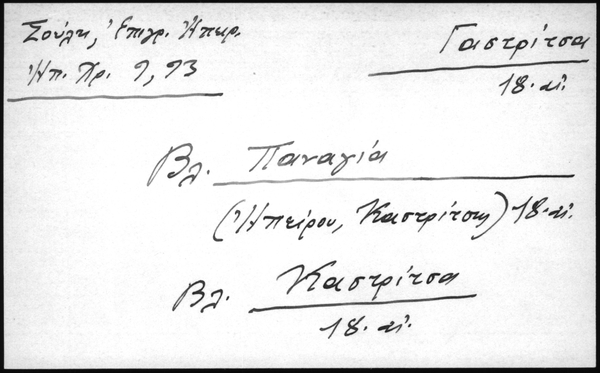 Σούλη, Ἐπιγρ. Ἠπειρ.
Ἠπ. Χρ. 9, 93
Γαστρίτσα
18. αἰ.
Βλ. Παναγία
(Ἠπείρου, Καστρίτσης) 18. αἰ.
Βλ. Καστρίτσα
18. αἰ.